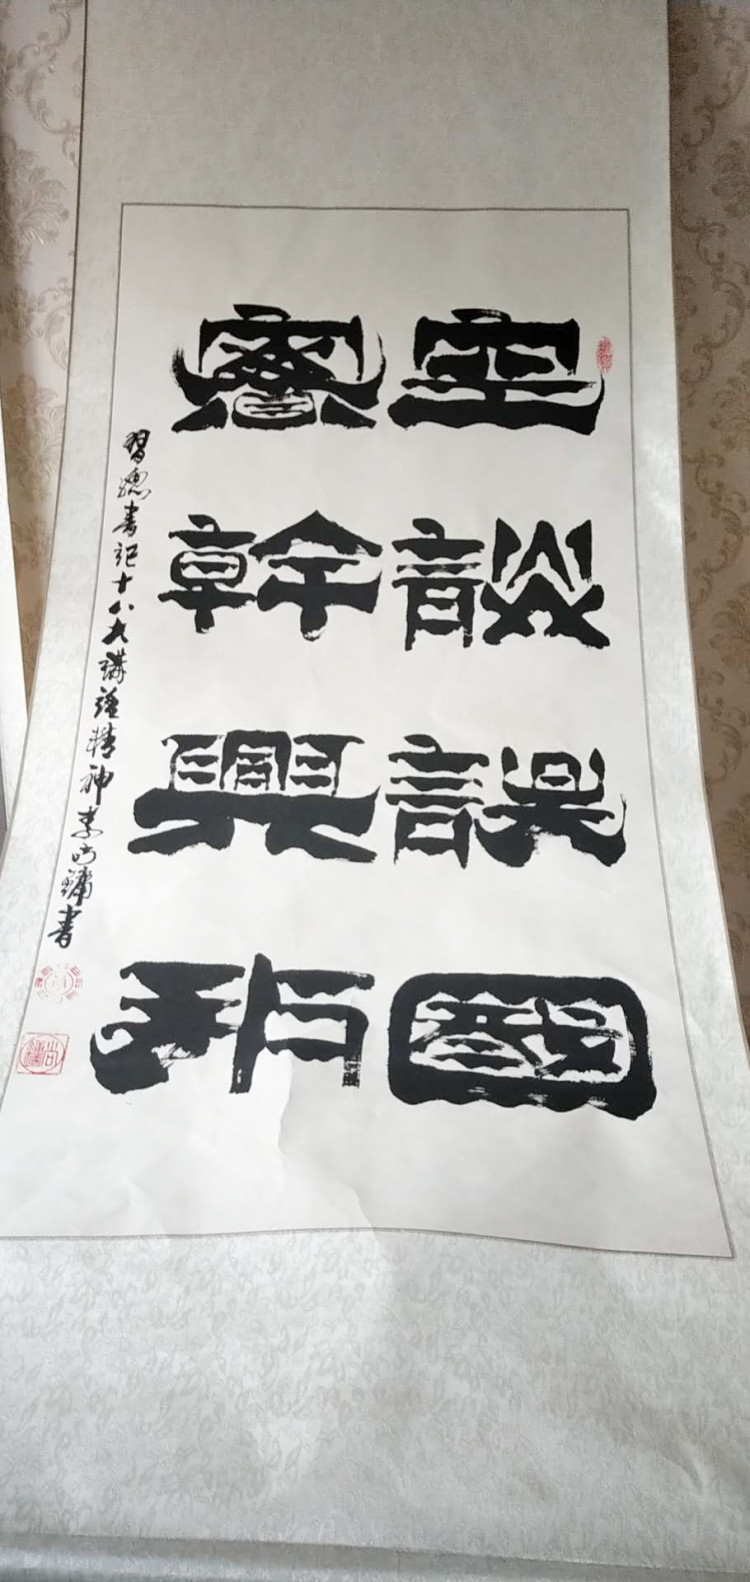 空談誤國
實幹興邦
習總書記十八大講話精神李尚鏞書